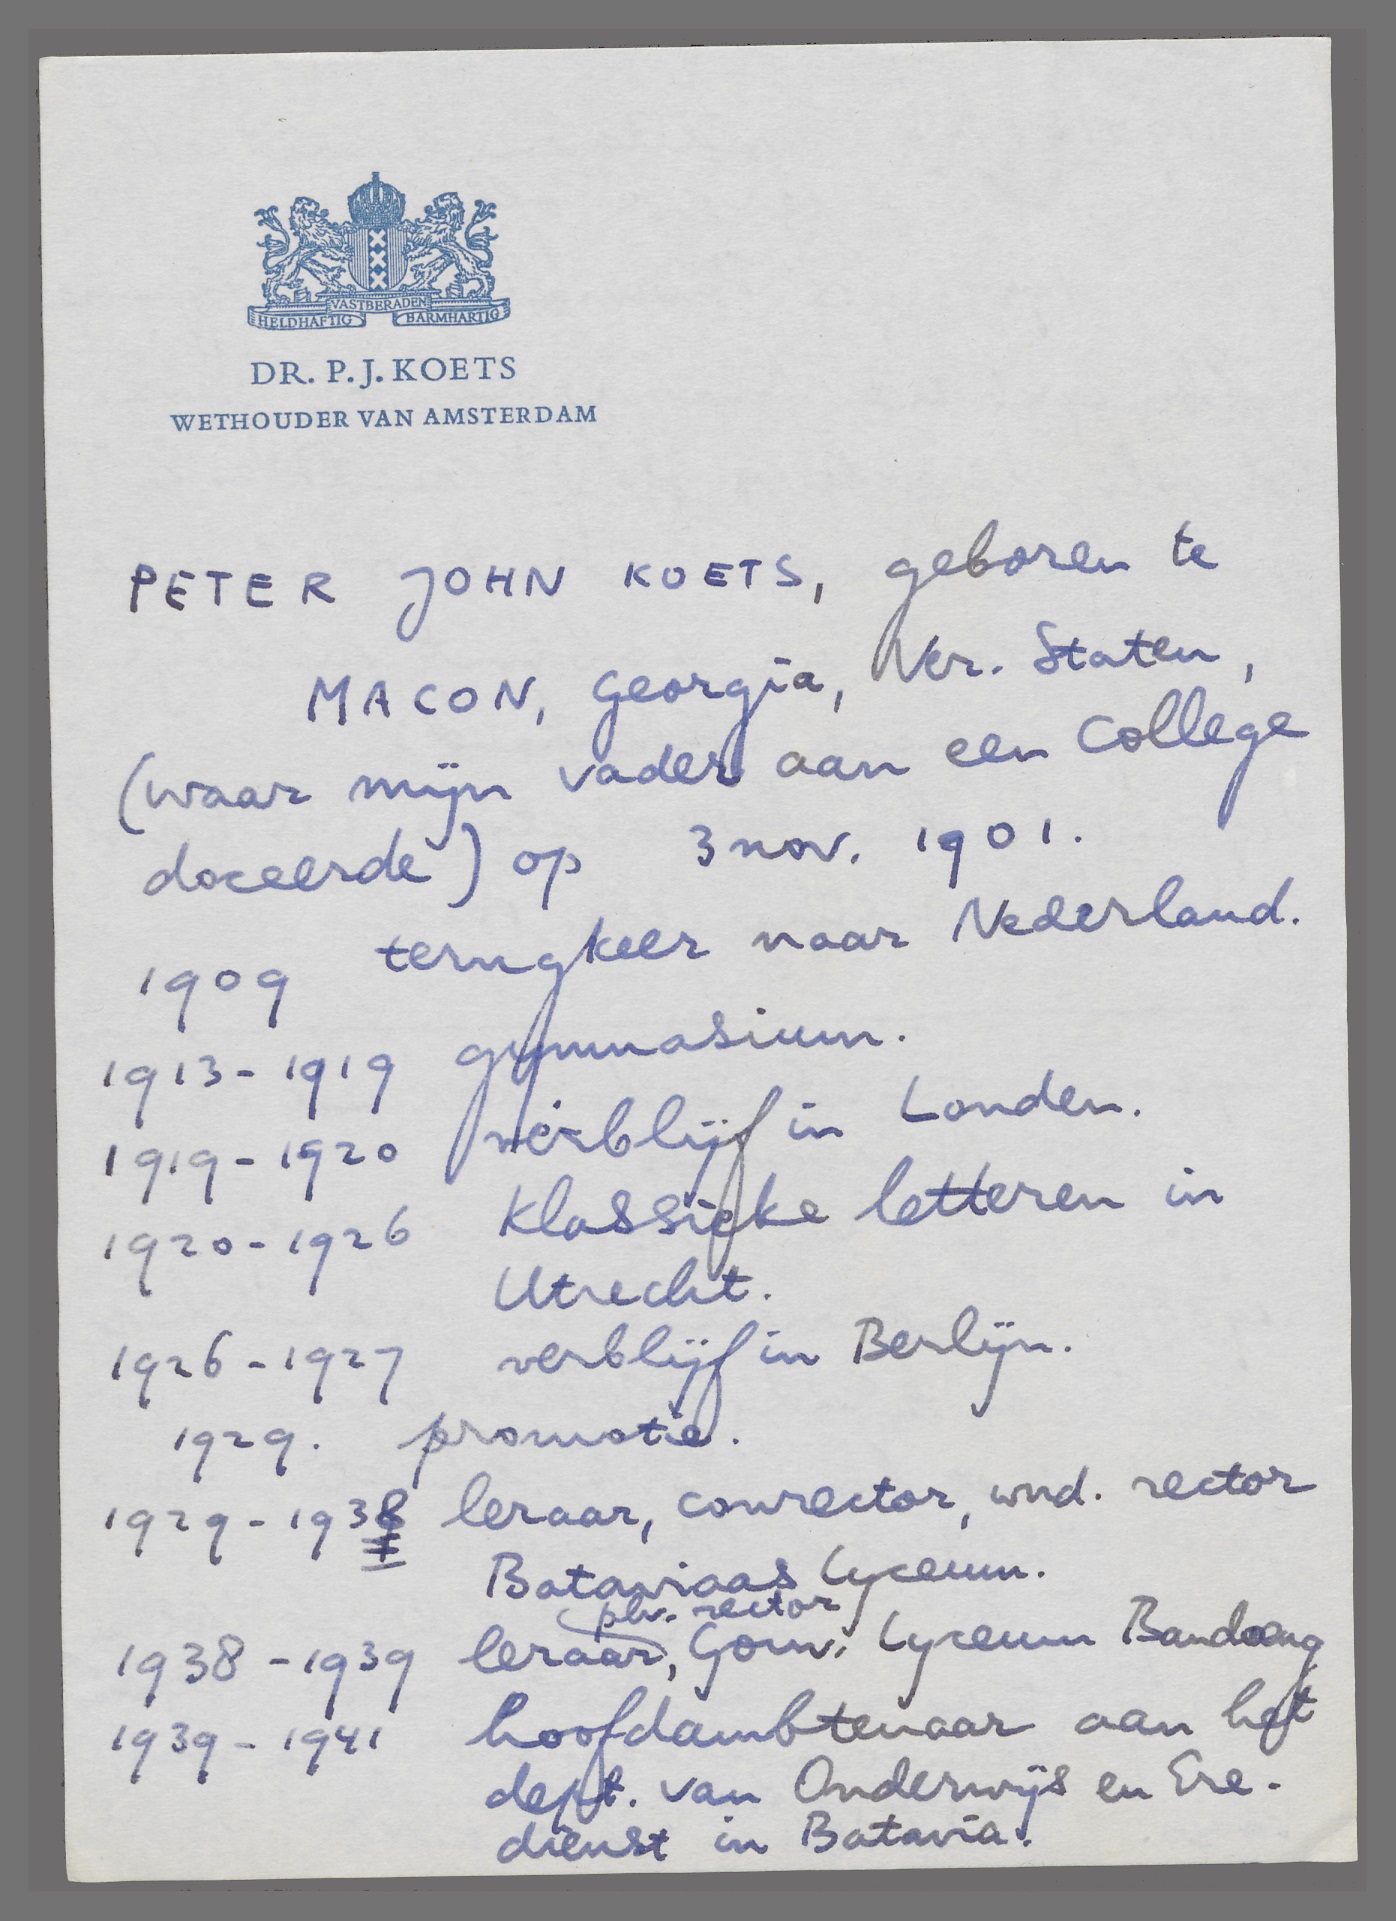 VASTBERADEN
HELDHAFTIG BARMHARTIG
DR. P. J. KOETS
WETHOUDER VAN AMSTERDAM
PETER JOHN KOETS, geboren te
MACON, Georgia, Ver. Staten,
(waar mijn vader aan een College
doceerde) op 3 nov. 1901.
1909 terugkeer naar Nederland.
1913-1919 gymnasium.
1919-1920 verblijf in Londen.
1920-1926 Klassieke letteren in
Utrecht.
1926-1927 verblijf in Berlijn.
1929. promotie.
1929-1938 leraar, conrector, wnd. rector
Bataviaas Lyceum.
plv. rector
1938-1939 leraar, Gouv. Lyceum Bandoeng
1939-1941 hoofdambtenaar aan het
dept. van Onderwijs en Ere-
dienst in Batavia.